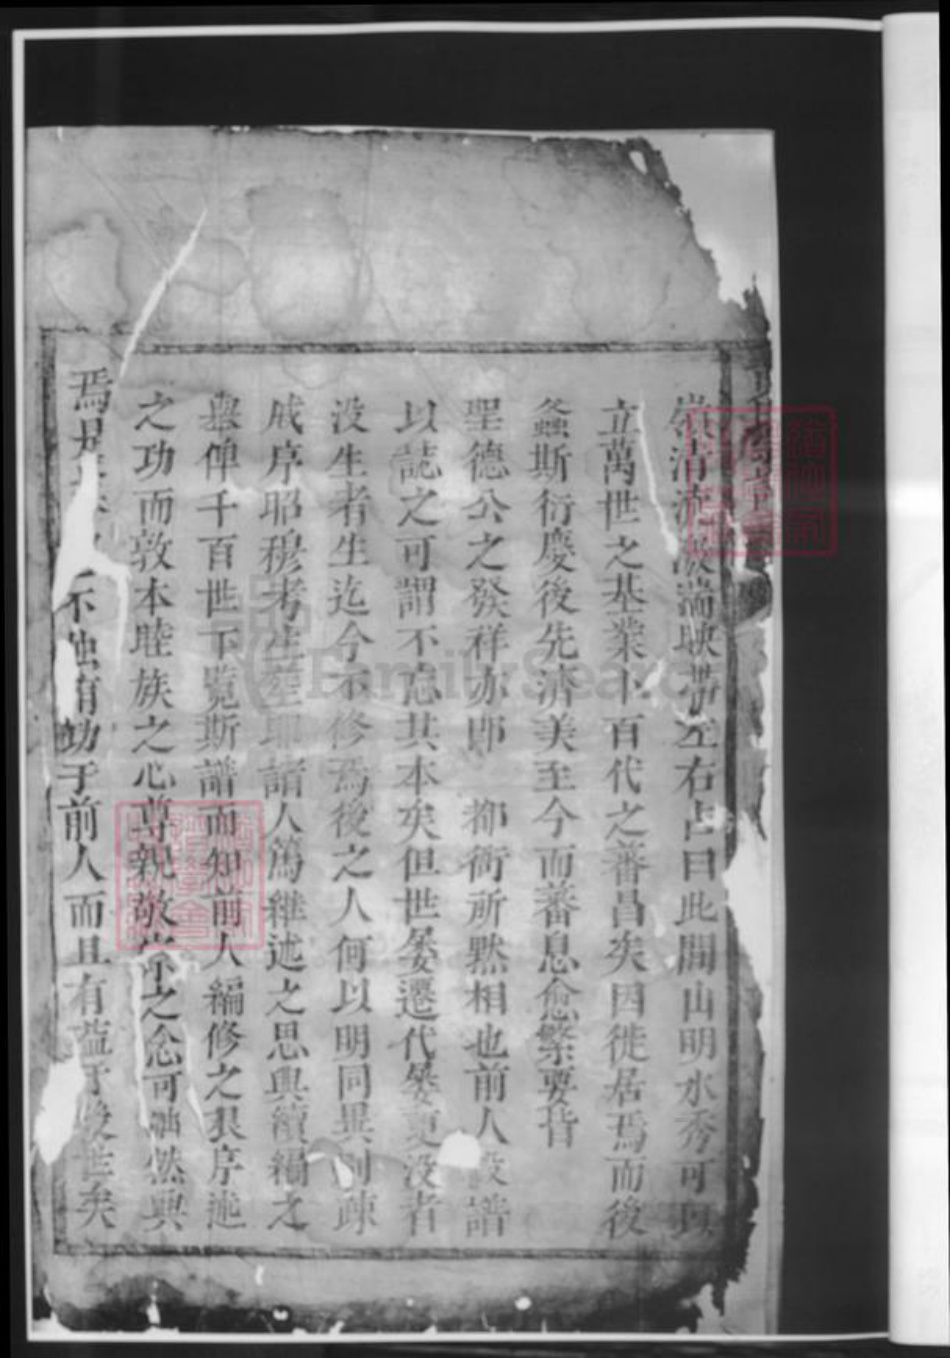 崇清流激湍映帶左右占曰此間山明水秀可以
立萬世之基業卜百代之蕃昌矣因徙居焉而後
螽斯衍慶後先濟美至今而蕃息愈繁要皆
聖德公之發祥亦郎 抑衙所黙相也前人設譜
以誌之可謂不忘其本矣但世屢遷代屢更没者
没生者生迄今不修焉後之人何以明同異別疎
戚序昭穆考生 耶諸人篤継述之思興續編之
舉俾千百世下覧斯譜而知前人編修之 序述
之功而敦本睦族之心尊親敬宗之念可油然興
焉是 不独有功于前人而且有益于後世矣
FamilySearch